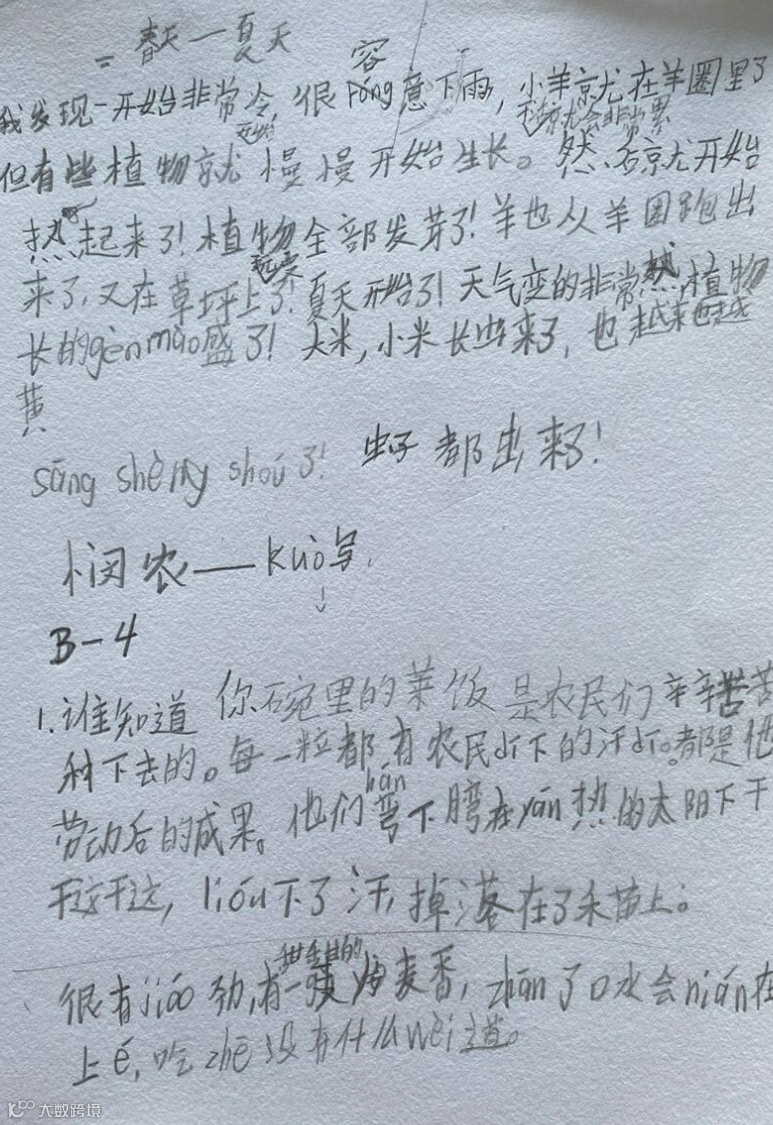 二 春天一夏天
容
我发现一开始非常冷,很róng意下雨,小羊就在羊圈里了
不就会非常累
开始
但有些植物就慢慢开始生长。然后就开始
热起来了!植物全部发芽了!羊也从羊圈跑出
玩耍
来了,又在草坪上了!夏天开始了!天气变的非常热,植物
长的gèn mào盛了!大米,小米长出来了,也越来也越
黄
sāng shèng shóu了!虫子都出来了!
悯农——kuò写
↓
B-4
1.谁知道 你碗里的菜饭是农民们辛辛苦苦
种下去的。每一粒都有农民dī下的汗dī。都是他
劳动后的成果。他们弯下腰在yán热的太阳下干
hán
干这干这,lióu下了汗,掉落在了禾苗上。
甜甜的
很有jiáo劲,有一 麦香,zhān了口水会nián在
上é,吃zhē没有什么wèi道。
大数跨境